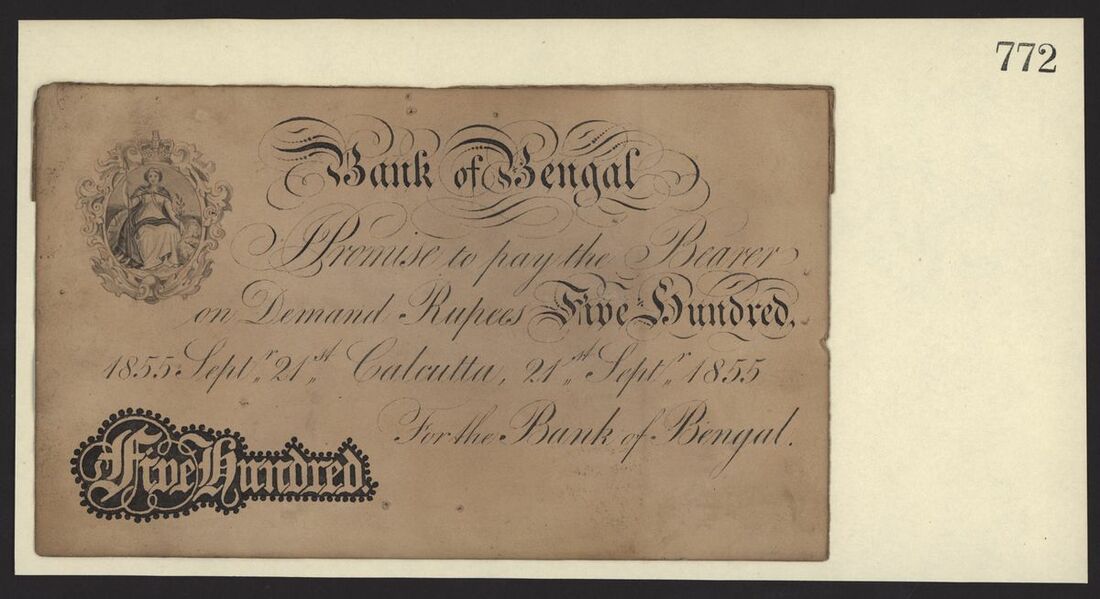 772
Bank of Bengal
I Promise to pay the Bearer
on Demand Rupees Five Hundred.
1855 Septr. 21st. Calcutta, 21st. Septr. 1855
For the Bank of Bengal.
Five Hundred.